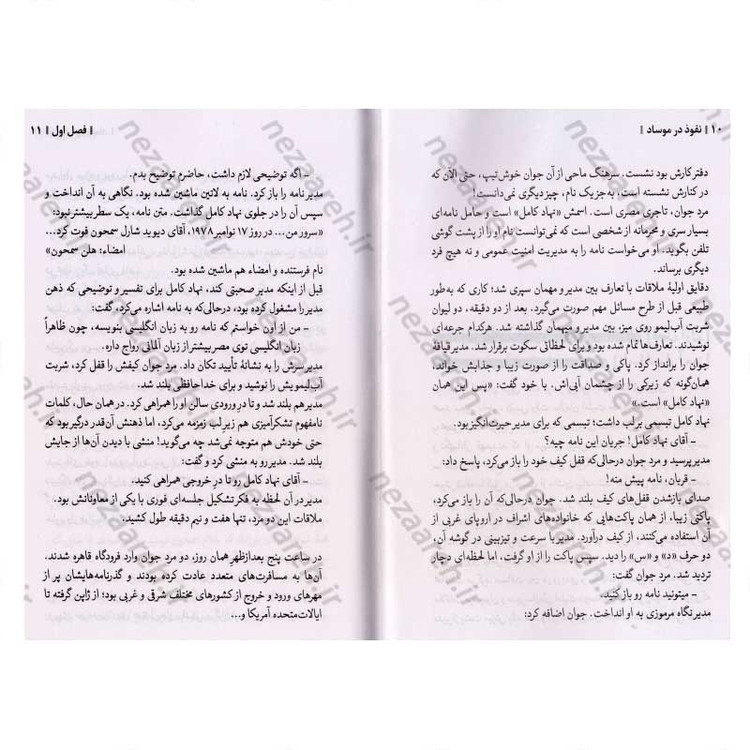 ۱۰ ‖ نفوذ در موساد ‖
دفتر کارش بود نشست. سرهنگ ماحی از آن جوان خوش‌تیپ، حتی الآن که
در کنارش نشسته است، به‌جز یک نام، چیز دیگری نمی‌دانست!
مرد جوان، تاجری مصری است. اسمش «نهاد کامل» است و حامل نامه‌ای
بسیار سری و محرمانه از شخصی است که نمی‌توانست نام او را از پشت گوشی
تلفن بگوید. او می‌خواست نامه را به مدیریت امنیت عمومی و نه هیچ فرد
دیگری برساند.
دقایق اولیهٔ ملاقات با تعارف بین مدیر و مهمان سپری شد؛ کاری که به‌طور
طبیعی قبل از طرح مسائل مهم صورت می‌گیرد. بعد از دو دقیقه، دو لیوان
شربت آب‌لیمو روی میز، بین مدیر و میهمان گذاشته شد. هرکدام جرعه‌ای
نوشیدند. تعارف‌ها تمام شده بود و برای لحظاتی سکوت برقرار شد. مدیر قیافهٔ
جوان را برانداز کرد. پاکی و صداقت را از صورت زیبا و جذابش خواند،
همان‌گونه که زیرکی را از چشمان آبی‌اش. با خود گفت: «پس این همان
«نهاد کامل» است.»
نهاد کامل تبسمی بر لب داشت؛ تبسمی که برای مدیر حیرت‌انگیز بود.
– آقای نهاد کامل! جریان این نامه چیه؟
مدیر پرسید و مرد جوان درحالی‌که قفل کیف خود را باز می‌کرد، پاسخ داد:
– قربان، نامه پیش منه!
صدای باز شدن قفل‌های کیف بلند شد. جوان درحالی‌که آن را باز می‌کرد،
پاکتی زیبا، از همان پاکت‌هایی که خانواده‌های اشراف در اروپای غربی از
آن استفاده می‌کنند، از کیف درآورد. مدیر با سرعت و تیزبینی در گوشه آن،
دو حرف «د» و «س» را دید. سپس پاکت را از او گرفت. اما لحظه‌ای دچار
تردید شد. مرد جوان گفت:
– میتونید نامه رو باز کنید.
مدیر نگاه مرموزی به او انداخت. جوان اضافه کرد:
‖ فصل اول ‖ ۱۱
– اگه توضیحی لازم داشت، حاضرم توضیح بدم.
مدیر نامه را باز کرد. نامه به لاتین ماشین شده بود. نگاهی به آن انداخت و
سپس آن را در جلوی نهاد کامل گذاشت. متن نامه، یک سطر بیشتر نبود:
«سرور من... در روز ۱۷ نوامبر ۱۹۷۸، آقای دیوید شارل سمحون فوت کرد...
امضاء: هلن سمحون»
نام فرستنده و امضاء هم ماشین شده بود.
قبل از اینکه مدیر صحبتی کند، نهاد کامل برای تفسیر و توضیحی که ذهن
مدیر را مشغول کرده بود، درحالی‌که به نامه اشاره می‌کرد، گفت:
– من از اون خواستم که نامه رو به زبان انگلیسی بنویسه، چون ظاهراً
زبان انگلیسی توی مصر بیشتر از زبان آلمانی رواج داره.
مدیر سرش را به نشانهٔ تأیید تکان داد. مرد جوان کیفش را قفل کرد، شربت
آب‌لیمویش را نوشید و برای خداحافظی بلند شد.
مدیر هم بلند شد و تا در ورودی سالن او را همراهی کرد. در همان حال، کلمات
نامفهوم تشکرآمیزی هم زیر لب زمزمه می‌کرد، اما ذهنش آن‌قدر درگیر بود که
حتی خودش هم متوجه نمی‌شد چه می‌گوید! منشی با دیدن آن‌ها از جایش
بلند شد. مدیر رو به منشی کرد و گفت:
– آقای نهاد کامل رو تا در خروجی همراهی کنید.
مدیر در آن لحظه به فکر تشکیل جلسه‌ای فوری با یکی از معاونانش بود.
ملاقات این دو مرد، تنها هفت و نیم دقیقه طول کشید.
در ساعت پنج بعدازظهر همان روز، دو مرد جوان وارد فرودگاه قاهره شدند.
آن‌ها به مسافرت‌های متعدد عادت کرده بودند و گذرنامه‌هایشان پر از
مهرهای ورود و خروج از کشورهای مختلف شرقی و غربی بود؛ از ژاپن گرفته تا
ایالات‌متحده آمریکا و...
nezaareh.ir